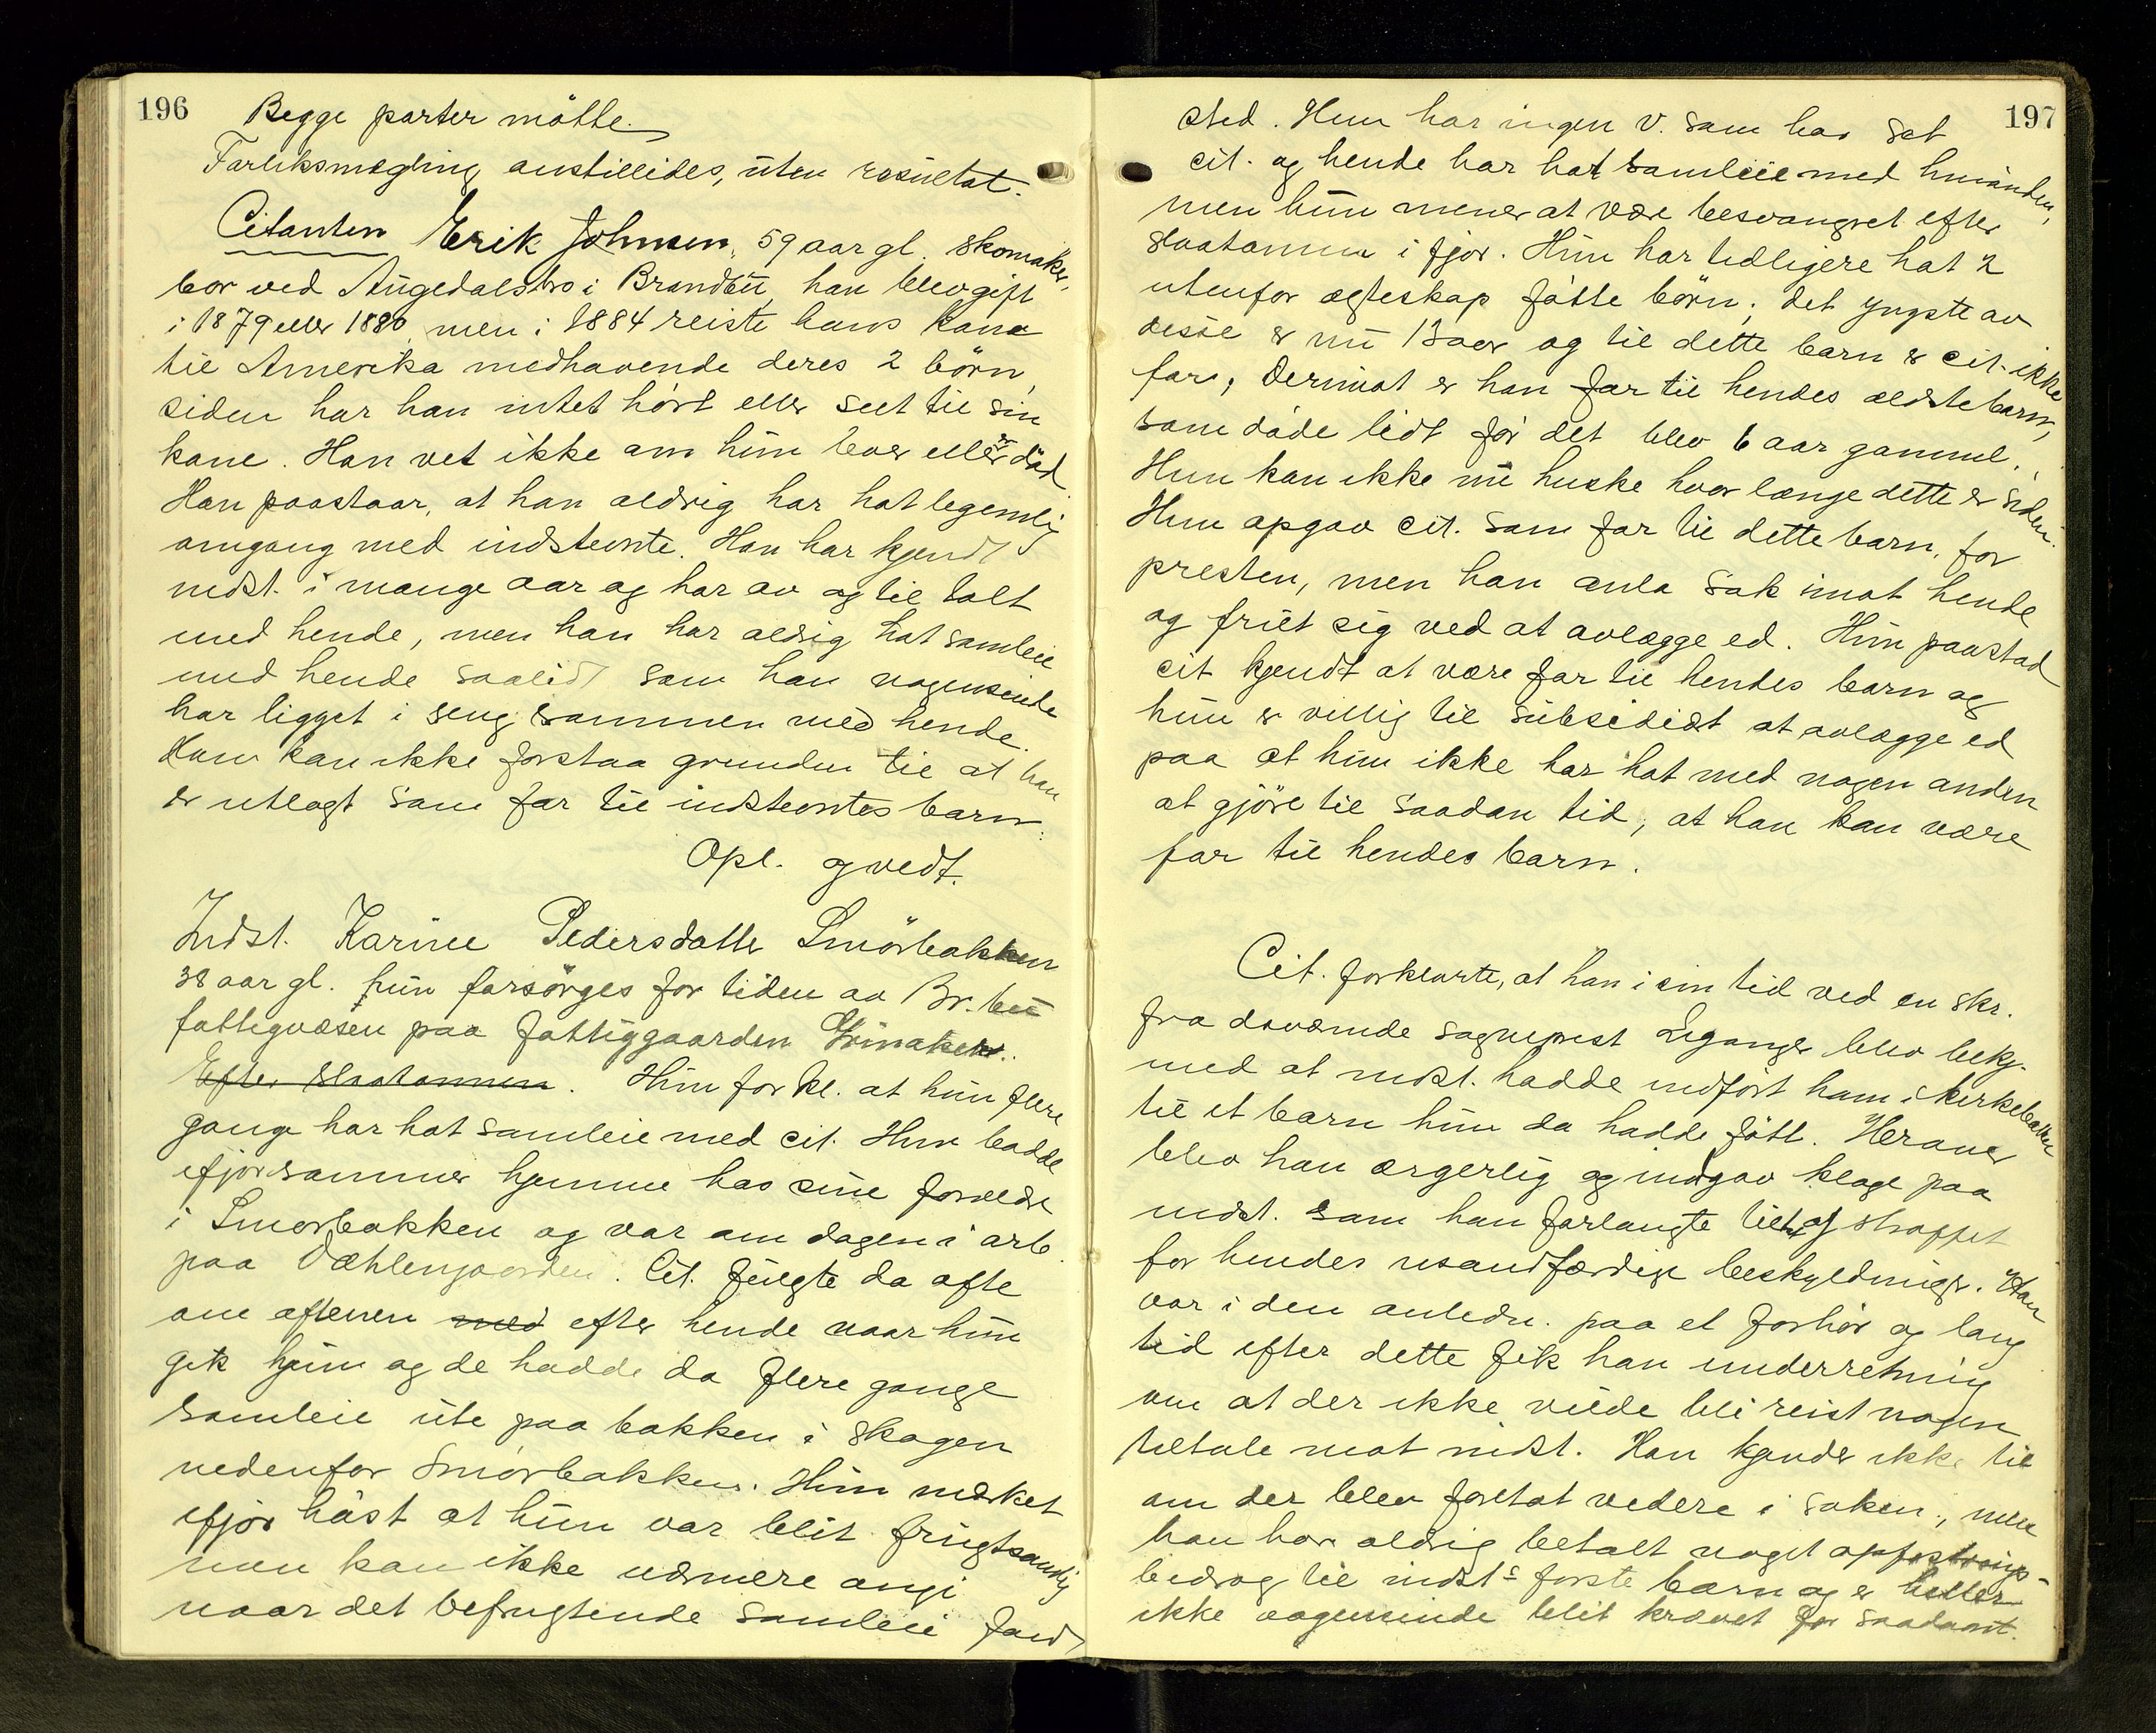 196
Begge parter mötte.
Forliksmægling anstillides, uten resultat.
Citanten Erik Johnsen, 59 aar gl. skomaker,
bor ved Augedalsbro i Brandbu, han blev gift
i 1879 eller 1880, men i 1884 reiste hans kone
til Amerika medhavende deres 2 börn,
siden har han intet hört eller seet til sin
kone. Han vet ikke om hun lever eller er död
Han paastaar, at han aldrig har hat legemlig
omgang med indstevnte. Han har kjendt
indst. i mange aar og har av og til talt
med hende, men han har aldrig hat samleie
med hende saalidt som han nogensinde
har ligget i seng sammen med hende.
Han kan ikke forstaa grunden til at han
er utlagt som far til indstevntes barn.
Opl. og vedt.
Indst. Karine Pedersdatter Smörbakken
38 aar gl. hun forsörges for tiden av Br.bu
fattigvæsen paa fattiggaarden Grinaker.
Efter slaatonnen. Hun forkl. at hun flere
gange har hat samleie med cit. Hun hadde
ifjor sommer hjemme hos sine forældre
i Smörbakken og var om dagen i arb.
paa Dæhlengaarden. Cit. fulgte da ofte
om aftenen med efter hende naar hun
gik hjem og de hadde da flere gange
samleie ute paa bakken i skogen
nedenfor Smörbakken. Hun merket
ifjor höst at hun var blit frugtsommelig
men kan ikke nærmere angi
naar det befrugtende samleie fandt
197
sted. Hun har ingen v. som har set
cit. og hende har hat samleie med hinanden,
men hun mener at være besvangret efter
slaatonnen i fjor. Hun har tidligere hat 2
utenfor ægteskap fötte börn; det yngste av
disse er nu 13 aar og til dette barn er cit. ikke
far, derimot er han far til hendes ældste barn,
som döde lidt för det blev 6 aar gammel.
Hun kan ikke nu huske hvor længe dette er siden.
Hun opgav cit. som far til dette barn, for
presten, men han anla sak imot hende
og friet sig ved at avlægge ed. Hun paastod
cit kjendt at være far til hendes barn og
hun er villig til subsidiært at avlægge ed
paa at hun ikke har hat med nogen anden
at gjöre til saadan tid, at han kan være
far til hendes barn.
Cit. forklarte, at han i sin tid ved en skr.
fra daværende sogneprest Leganger blev bekj.
med at indst. hadde indfört ham i kirkeboken
til et barn hun da hadde fött. Herover
blev han ærgerlig og indgav klage paa
indst. som han forlangte tilt. og straffet
for hendes usandfærdige beskyldninger. Han
var i den anledn. paa et forhör og lang
tid efter dette fik han underretning
om at der ikke vilde bli reist nogen
tiltale mot indst. Han kjender ikke til
om der blev foretat videre i saken, men
han har aldrig betalt noget opfostrings-
bidrag til indsts förste barn og er heller
ikke nogensinde blit krævet for saadant.